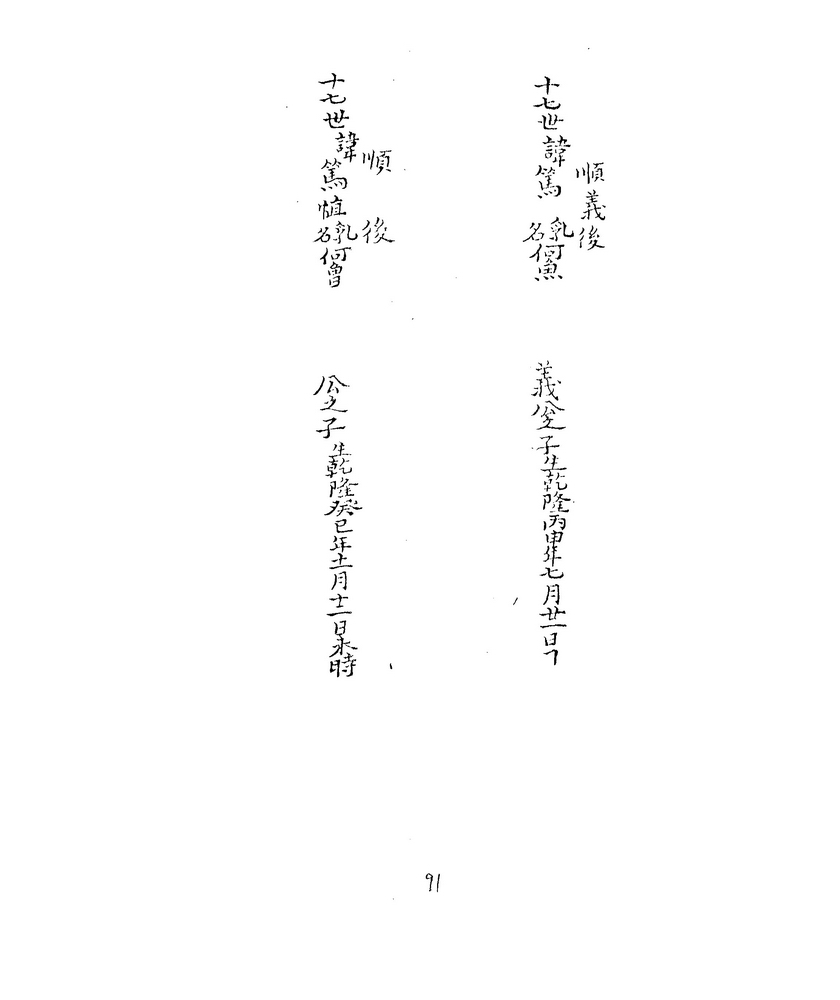 順義後
十七世諱篤 乳名何魚
義公之子生乾隆丙申年七月廿一日
順 後
十七世諱篤 乳名何曾
公之子生乾隆癸巳年十一月十二日未時
91